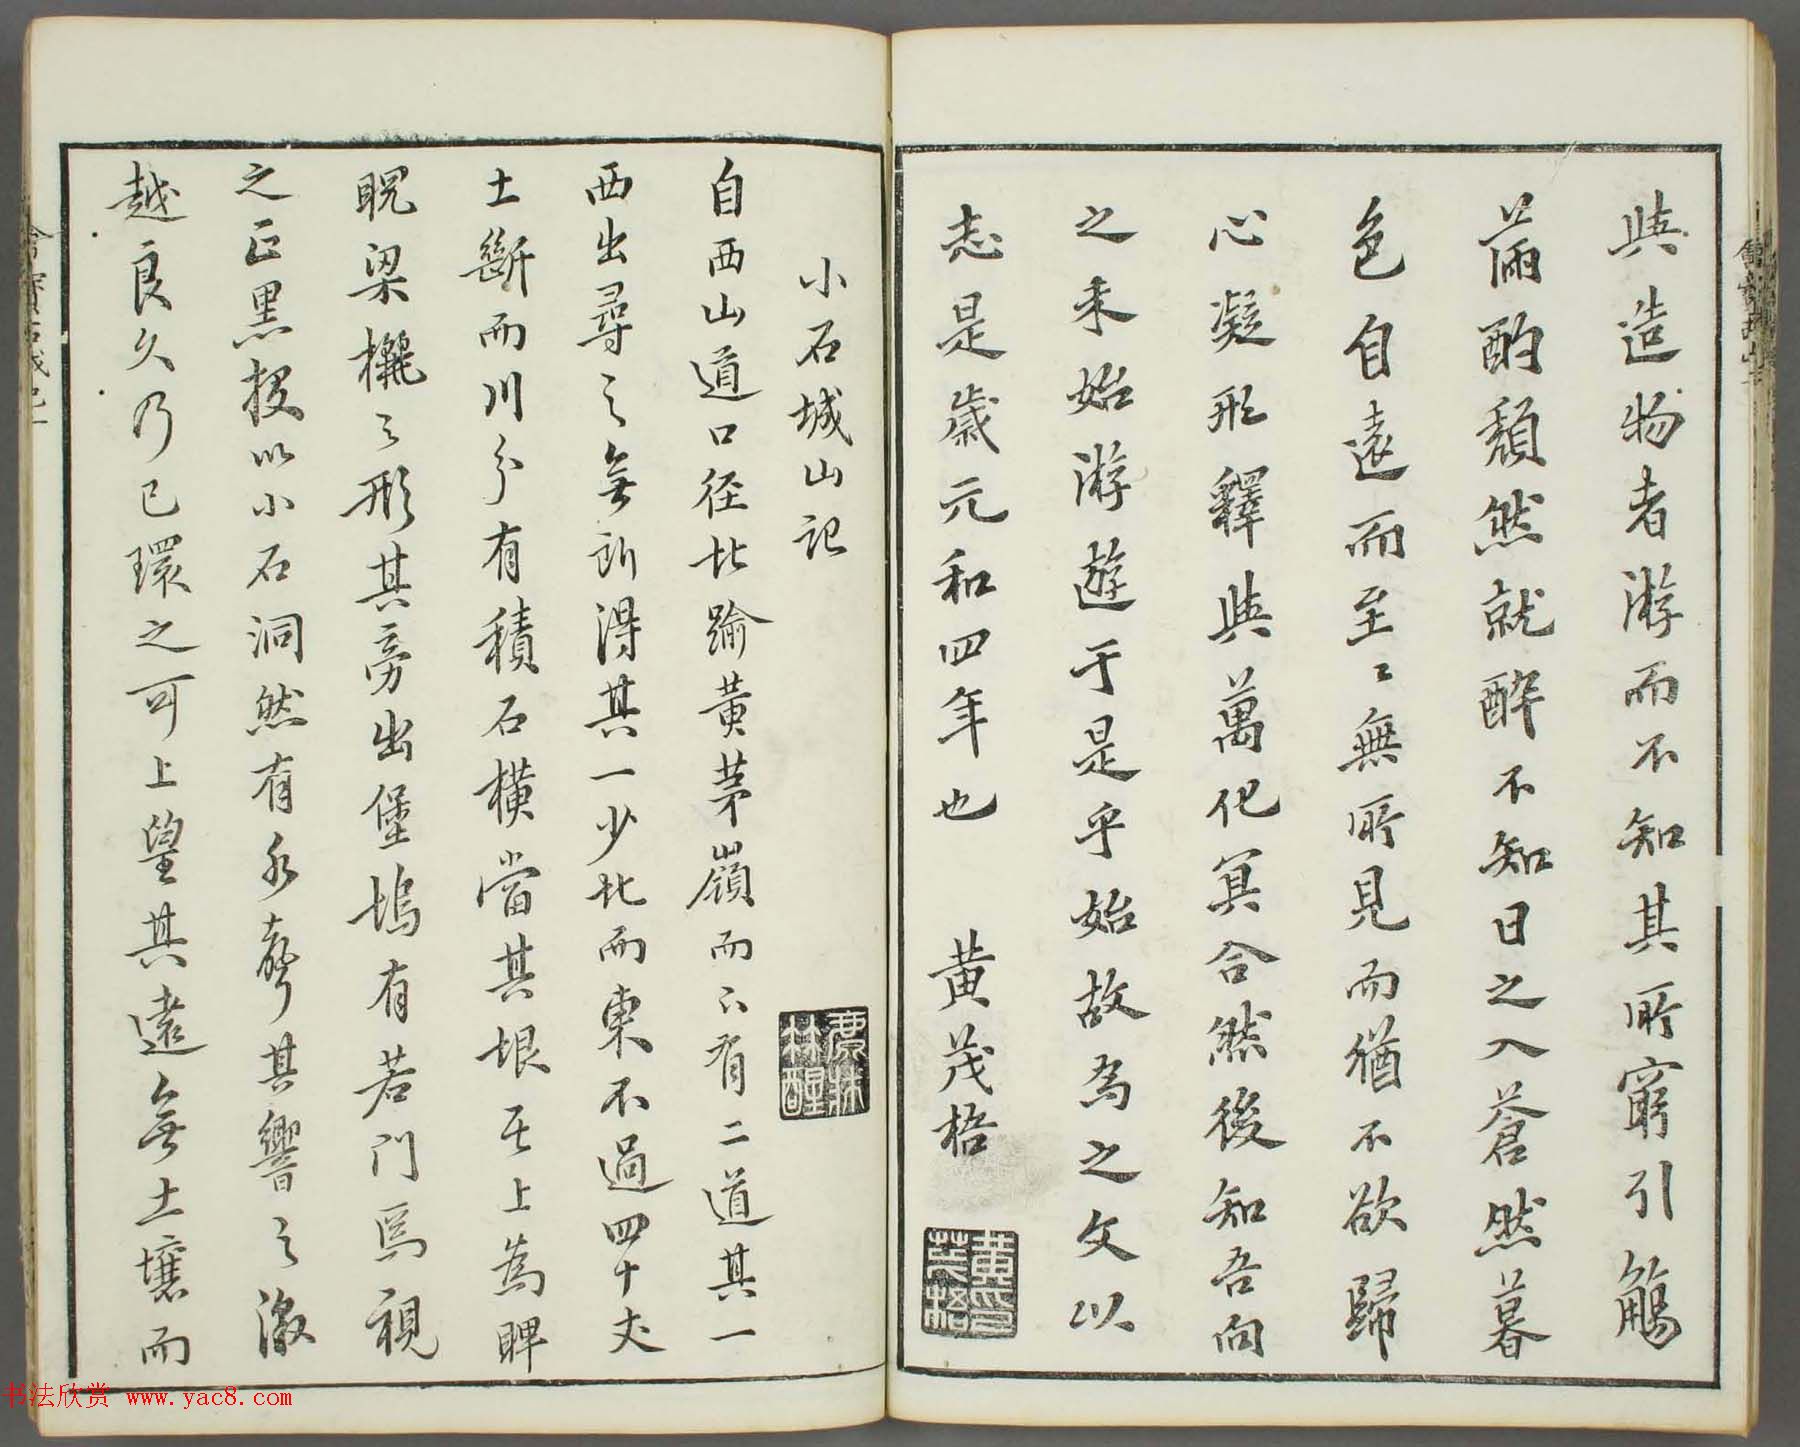 與造物者游而不知其所窮引觴
滿酌頹然就醉不知日之入蒼然暮
色自遠而至〻無所見而猶不欲歸
心凝形釋與萬化冥合然後知吾向
之未始游遊于是乎始故為之文以
志是歲元和四年也 黄茂梧
黄印茂梧
小石城山記
自西山道口徑北踰黄茅嶺而下有二道其一
西出尋之無所得其一少北而東不過四十丈
土斷而川分有積石橫當其垠其上為睥
睨梁欐之形其旁出堡塢有若門焉視
之正黑投以小石洞然有水聲其響之激
越良久乃已環之可上望其遠無土壤而
书法欣赏 www.yac8.com